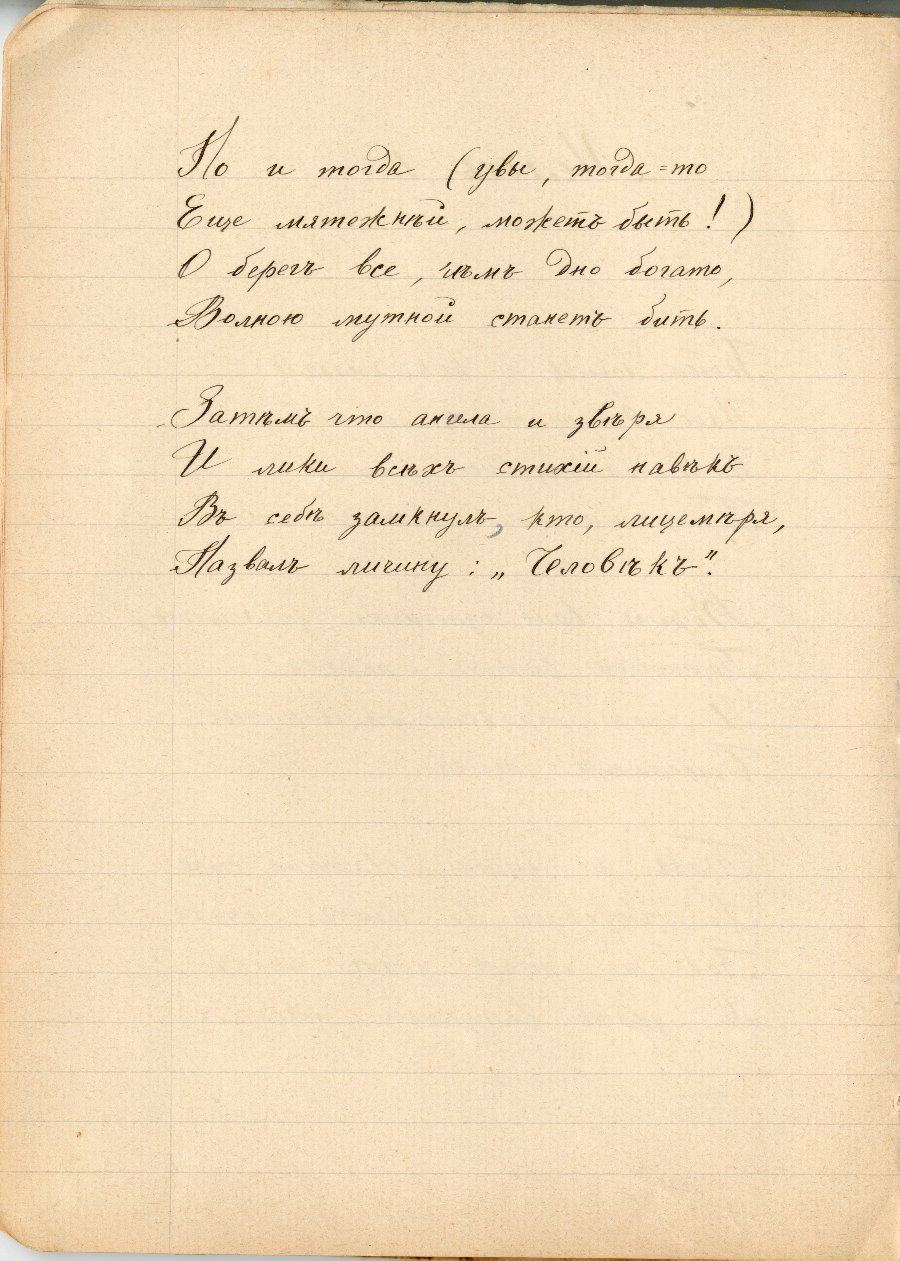 Но и тогда (увы, тогда=то
Еще мятежнѣй, можетъ быть!)
О берегъ все, чѣмъ дно богато,
Волною мутной станетъ бить.
Затѣмъ что ангела и звѣря
И лики всѣхъ стихій навѣкъ
Въ себѣ замкнулъ, кто, лицемѣря,
Назвалъ личину: „Человѣкъ".